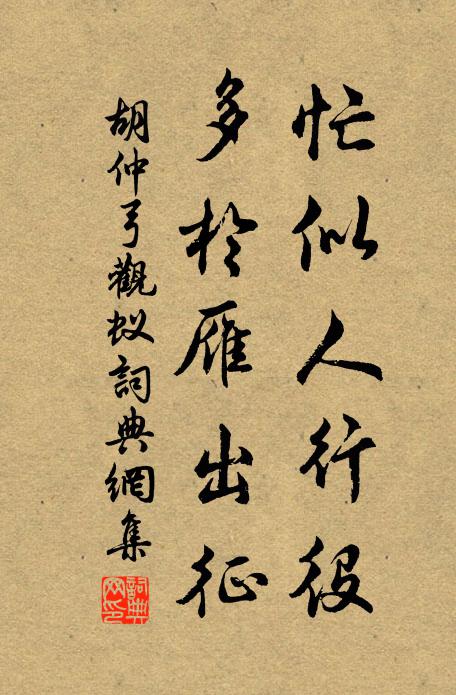 忙似人行役
多於雁出征
胡仲弓觀蚁詞典網集
詞典网印